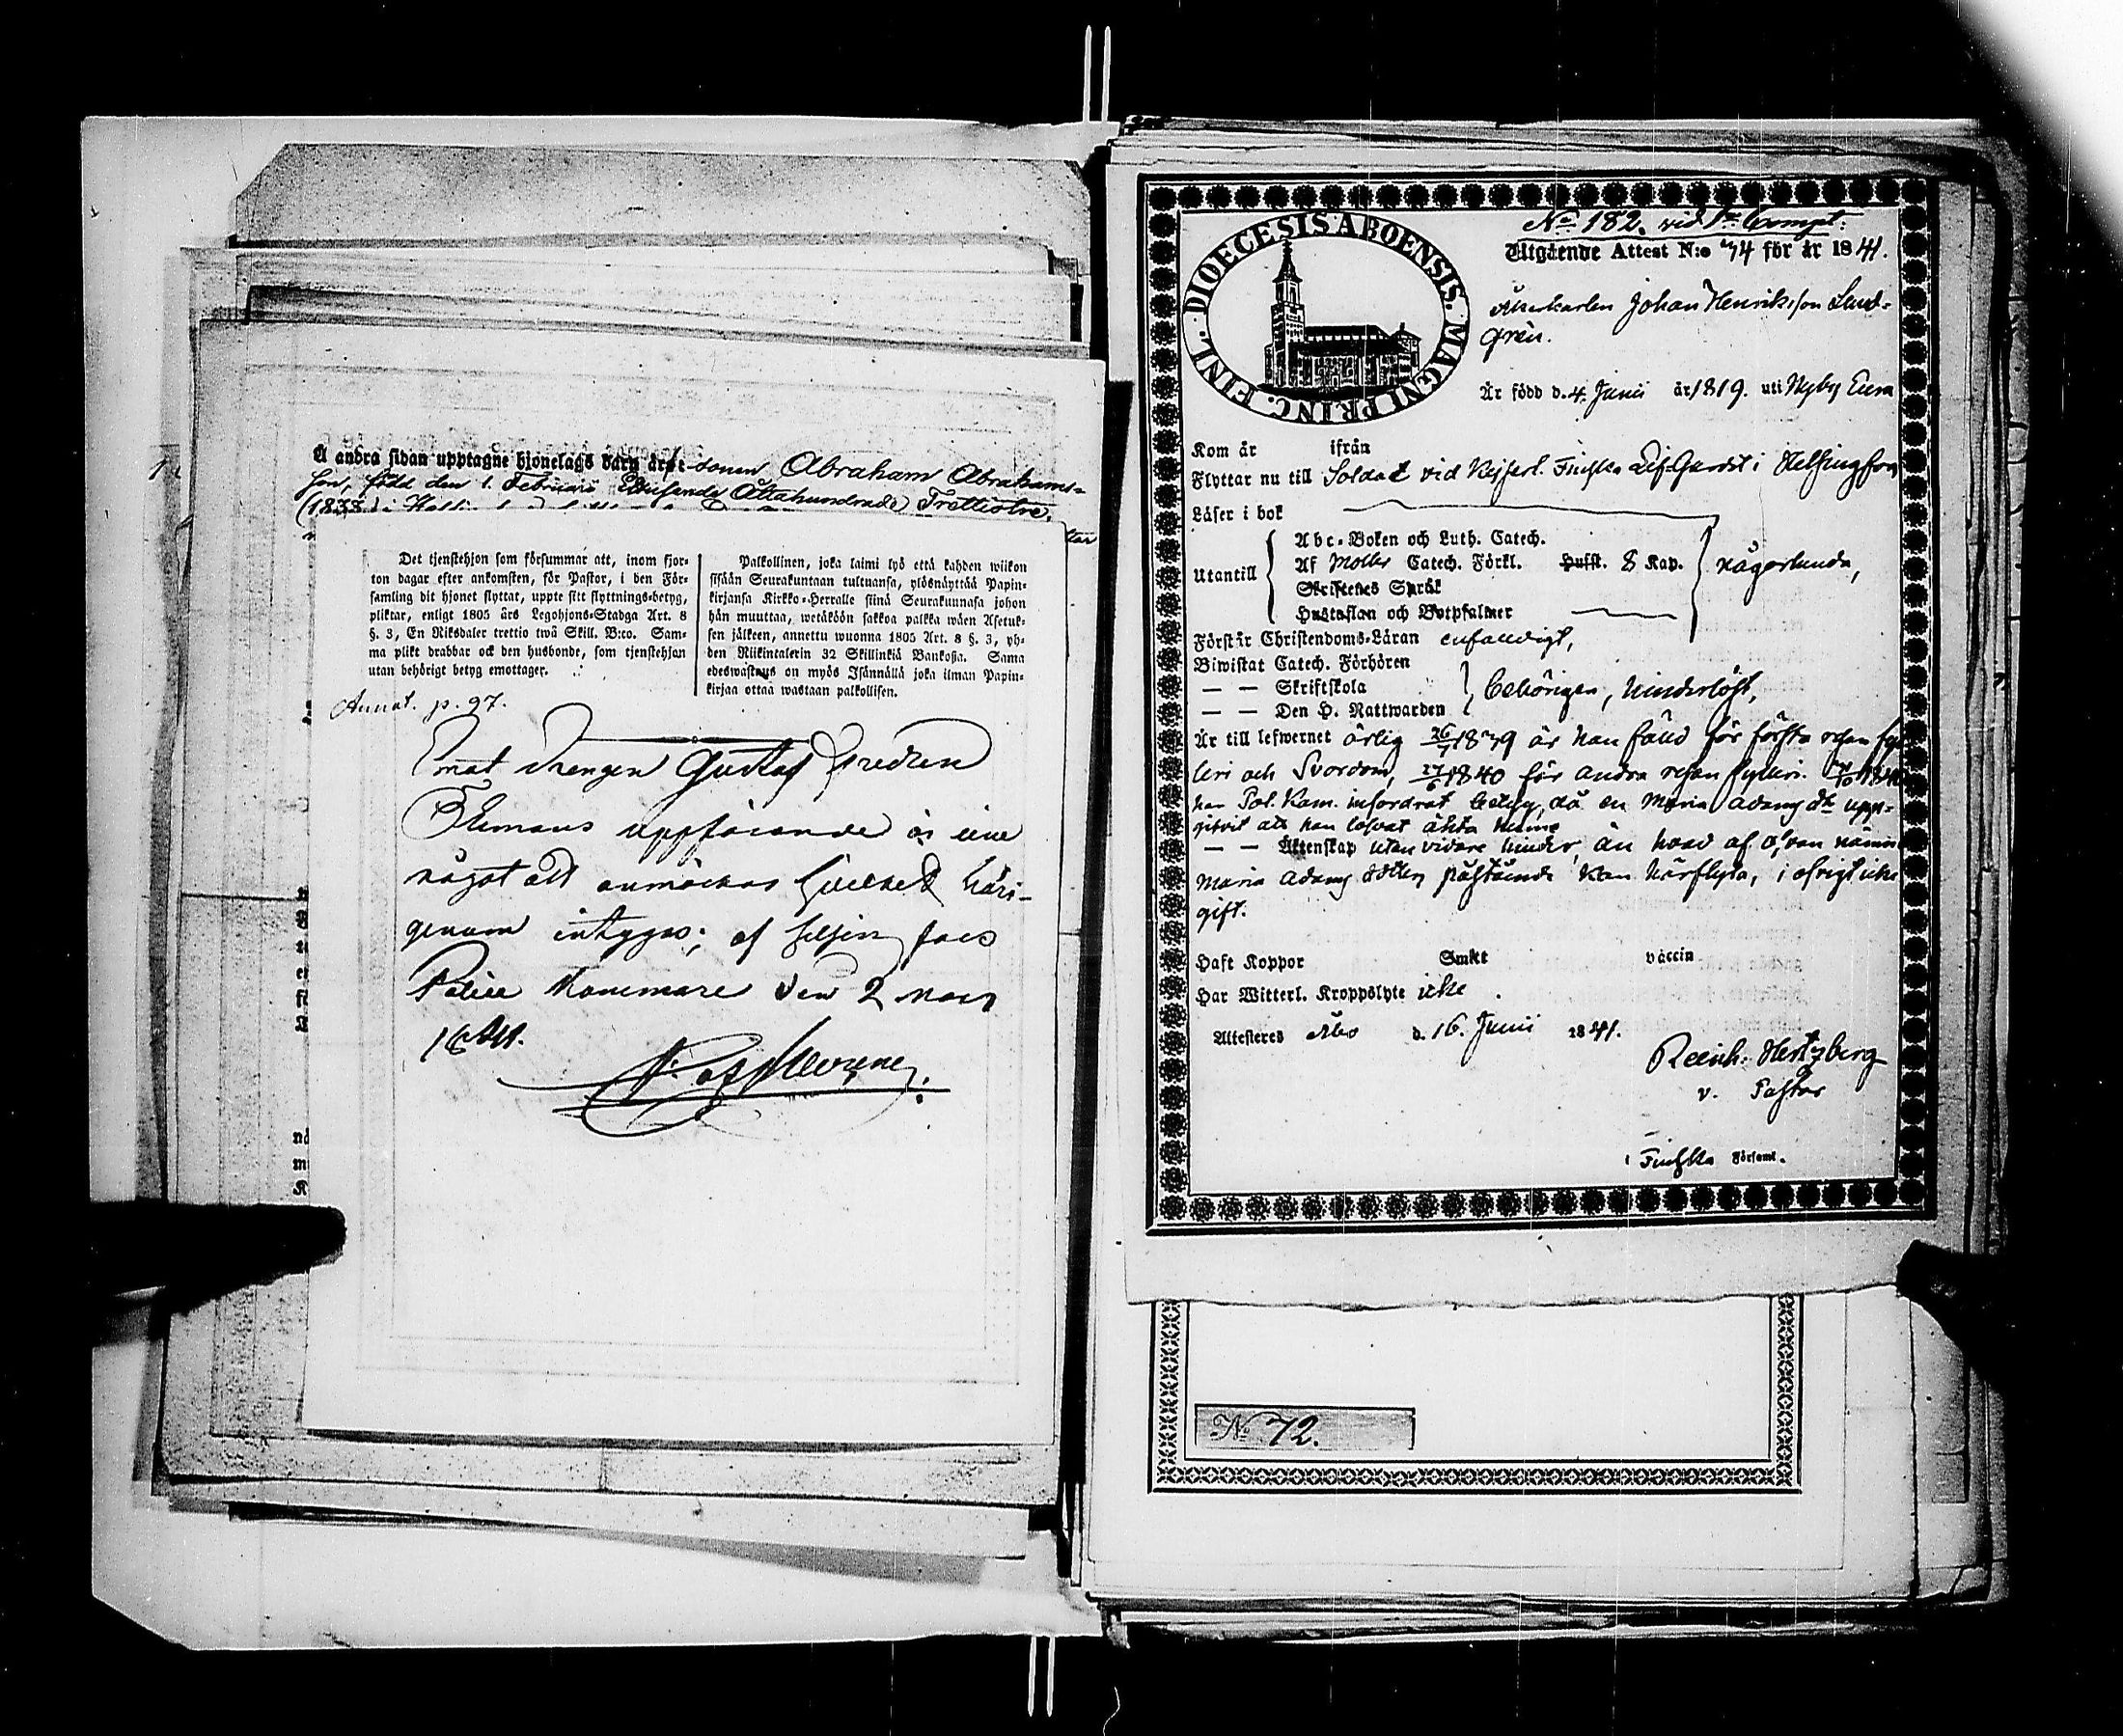 Å andra sidan upptagne hjonelags barn är: sonen Abraham Abrahams-
son, född den 1. Februari Ettusende Åttahundrade Trettiotre.
(1833)
Det tjenstehjon som försummar att, inom fjor-
ton dagar efter ankomsten, för Pastor, i den För-
samling dit hjonet flyttat, uppte sitt flyttnings-betyg,
pliktar, enligt 1805 års Legohjons-Stadga Art. 8
§. 3, En Riksdaler trettio twå Skill. B:co. Sam-
ma plikt drabbar ock den husbonde, som tjenstehjon
utan behörigt betyg emottager.
Palkollinen, joka laimi lyö että kahden wiikon
sisään Seurakuntaan tultuansa, ylösnäyttää Papin-
kirjansa Kirkko-Herralle siinä Seurakunnasa johon
hän muuttaa, wetäköön sakkoa palkka wäen Asetuk-
sen jälkeen, annettu wuonna 1805 Art. 8 §. 3, yh-
den Riikintalerin 32 Skillinkiä Bankossa. Sama
edeswastaus on myös Isännällä joka ilman Papin-
kirjaa ottaa wastaan palkollisen.
Annot. p. 97.
Emot drengen Gustaf
uppförande är
något att anmärkas hvilket häri-
genom intygas; af Helsingfors
Police Kammare den 2 Mars
1841.
DIOECESIS ABOENSIS. MAGNI PRINC. FINL.
No 182. vid 1:a Compt.
Utgående Attest N:o 74 för år 1841.
Johan Henriksson Lund-
gren.
Är född d. 4. Junii år 1819. uti Nyby Eura
Kom år ifrån
Flyttar nu till Soldat vid Kejserl. Finska Lif-Gardet i Helsingfors
Läser i bok
Abc-Boken och Luth. Catech.
Utantill Af Möller Catech. Förkl. Hufst. 8 Kap. någorlunda,
Skriftenes Språk
Hustaflan och Botpsalmer
Förstår Christendoms-Läran enfaldigt,
Biwistat Catech. Förhören
— — Skriftskola behörigen, hinderlöst,
— — Den H. Nattwarden
Är till lefwernet ärlig 26/1 1839 är han fälld för första resan fyl-
leri och Svordom, 27/6 1840 för andra resan fylleri.
har Pol. Kam. infordrat betyg, då en Maria Adamsdr upp-
gifvit att han lofvat äkta henne
— — Äktenskap utan vidare hinder, än hvad af ofvan nämnde
Maria Adams dotters påstående kan härflyta, i öfrigt icke
gift.
Haft Koppor Smkt vaccin
Har Witterl. Kroppslyte icke
Attesteres Åbo d. 16. Junii 1841.
Reinh. Hertzberg
v. Pastor
i Finska Församl.
No 72.